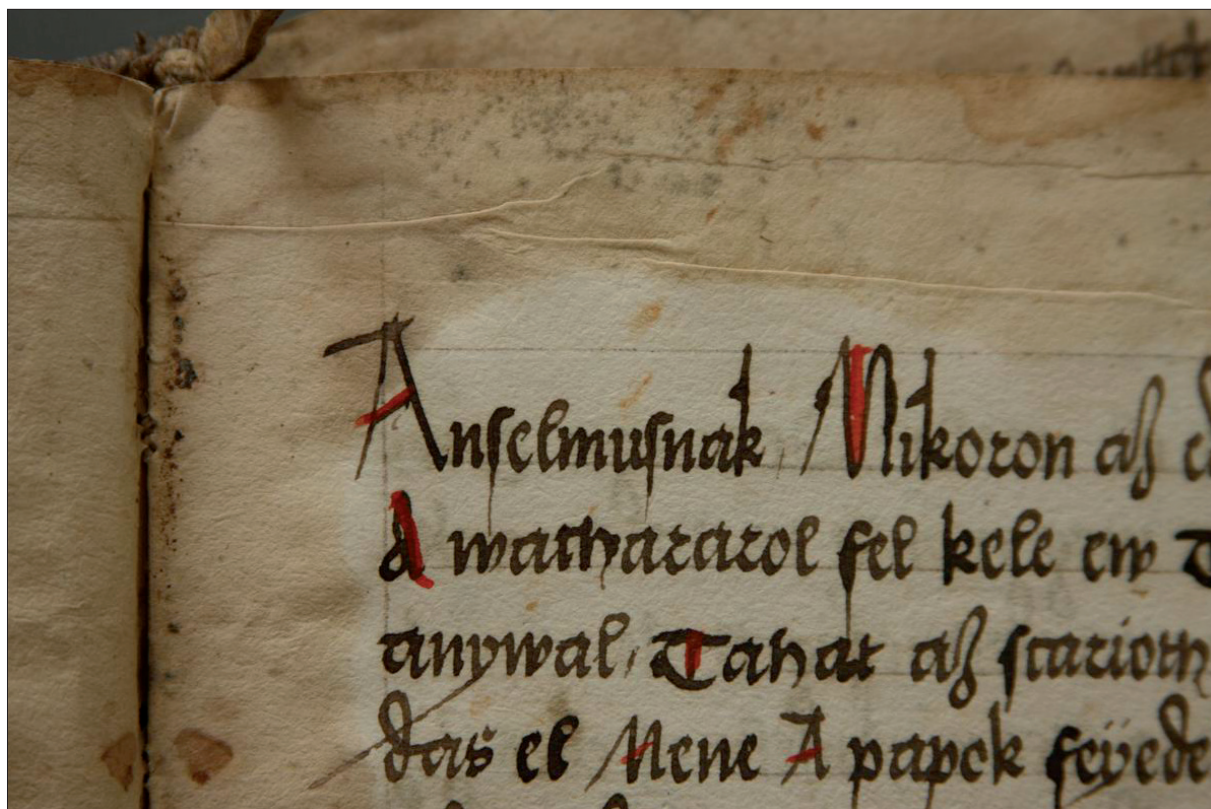 Anselmusnak, Mikoron az
A watharazol fel kele ew
anywal, Tahat az scarioth
das el Mene A papok feÿede